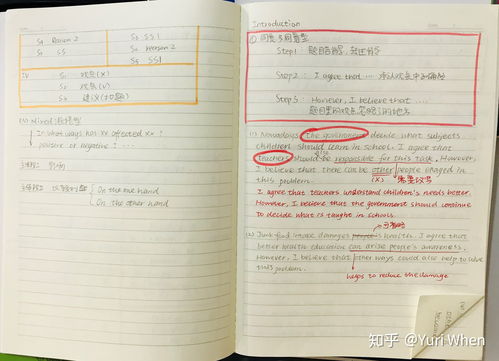 S4 Reason 2
S5 SS
S2 SS1
S3 Reason 2
S4 SS1
IV
S1 观点(X)
S2 观点(V)
S3 建议
(4) Mixed 混搭型
In what ways has xx affected xx?
positive or negative I ...
On the one hand
On the other hand
Introduction
Step 1:
Step 2: I agree that ... 承认观点中正确处
Step 3: However, I believe that ...
(1) Nowadays, the government decide what subjects
children should learn in schools. I agree that
teachers should be responsible for this task. However,
I believe that there can be other people engaged in
this problem. (X)
I agree that teachers understand children's needs better.
However, I believe that the government should continue
to decide what is taught in schools.
(2) Junk food intake damages people's health. I agree that
better health education can arise people's awareness.
However, I believe that other ways could also help to solve
this problem.
helps to reduce the damage
知乎 @Yuri When